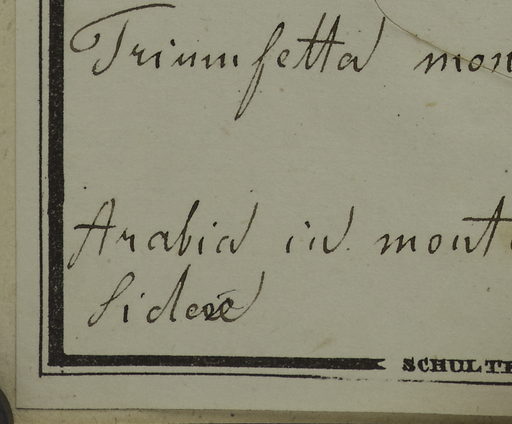 Triumfetta mon
Arabia in mont
Sidere
SCHULTE